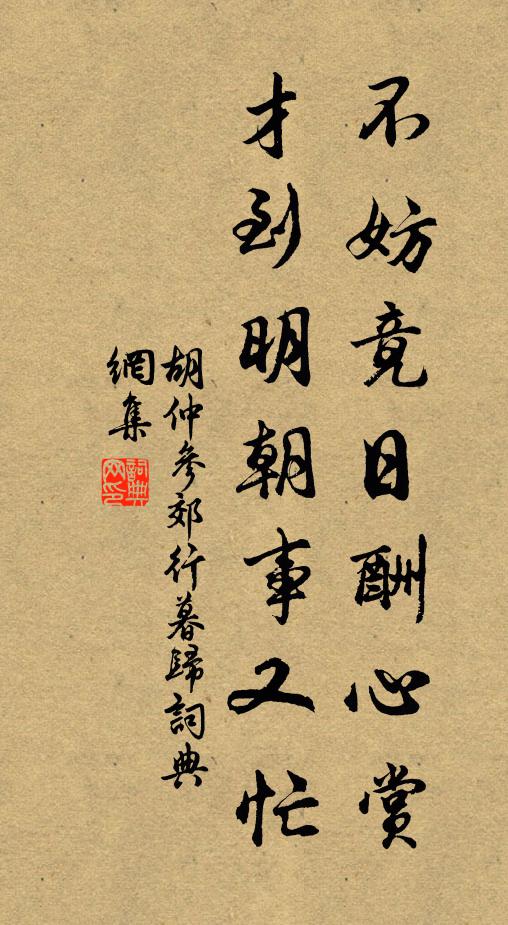 不妨竟日酬心赏
才到明朝事又忙
胡仲參郊行暮歸詞典
網集
詞典網印